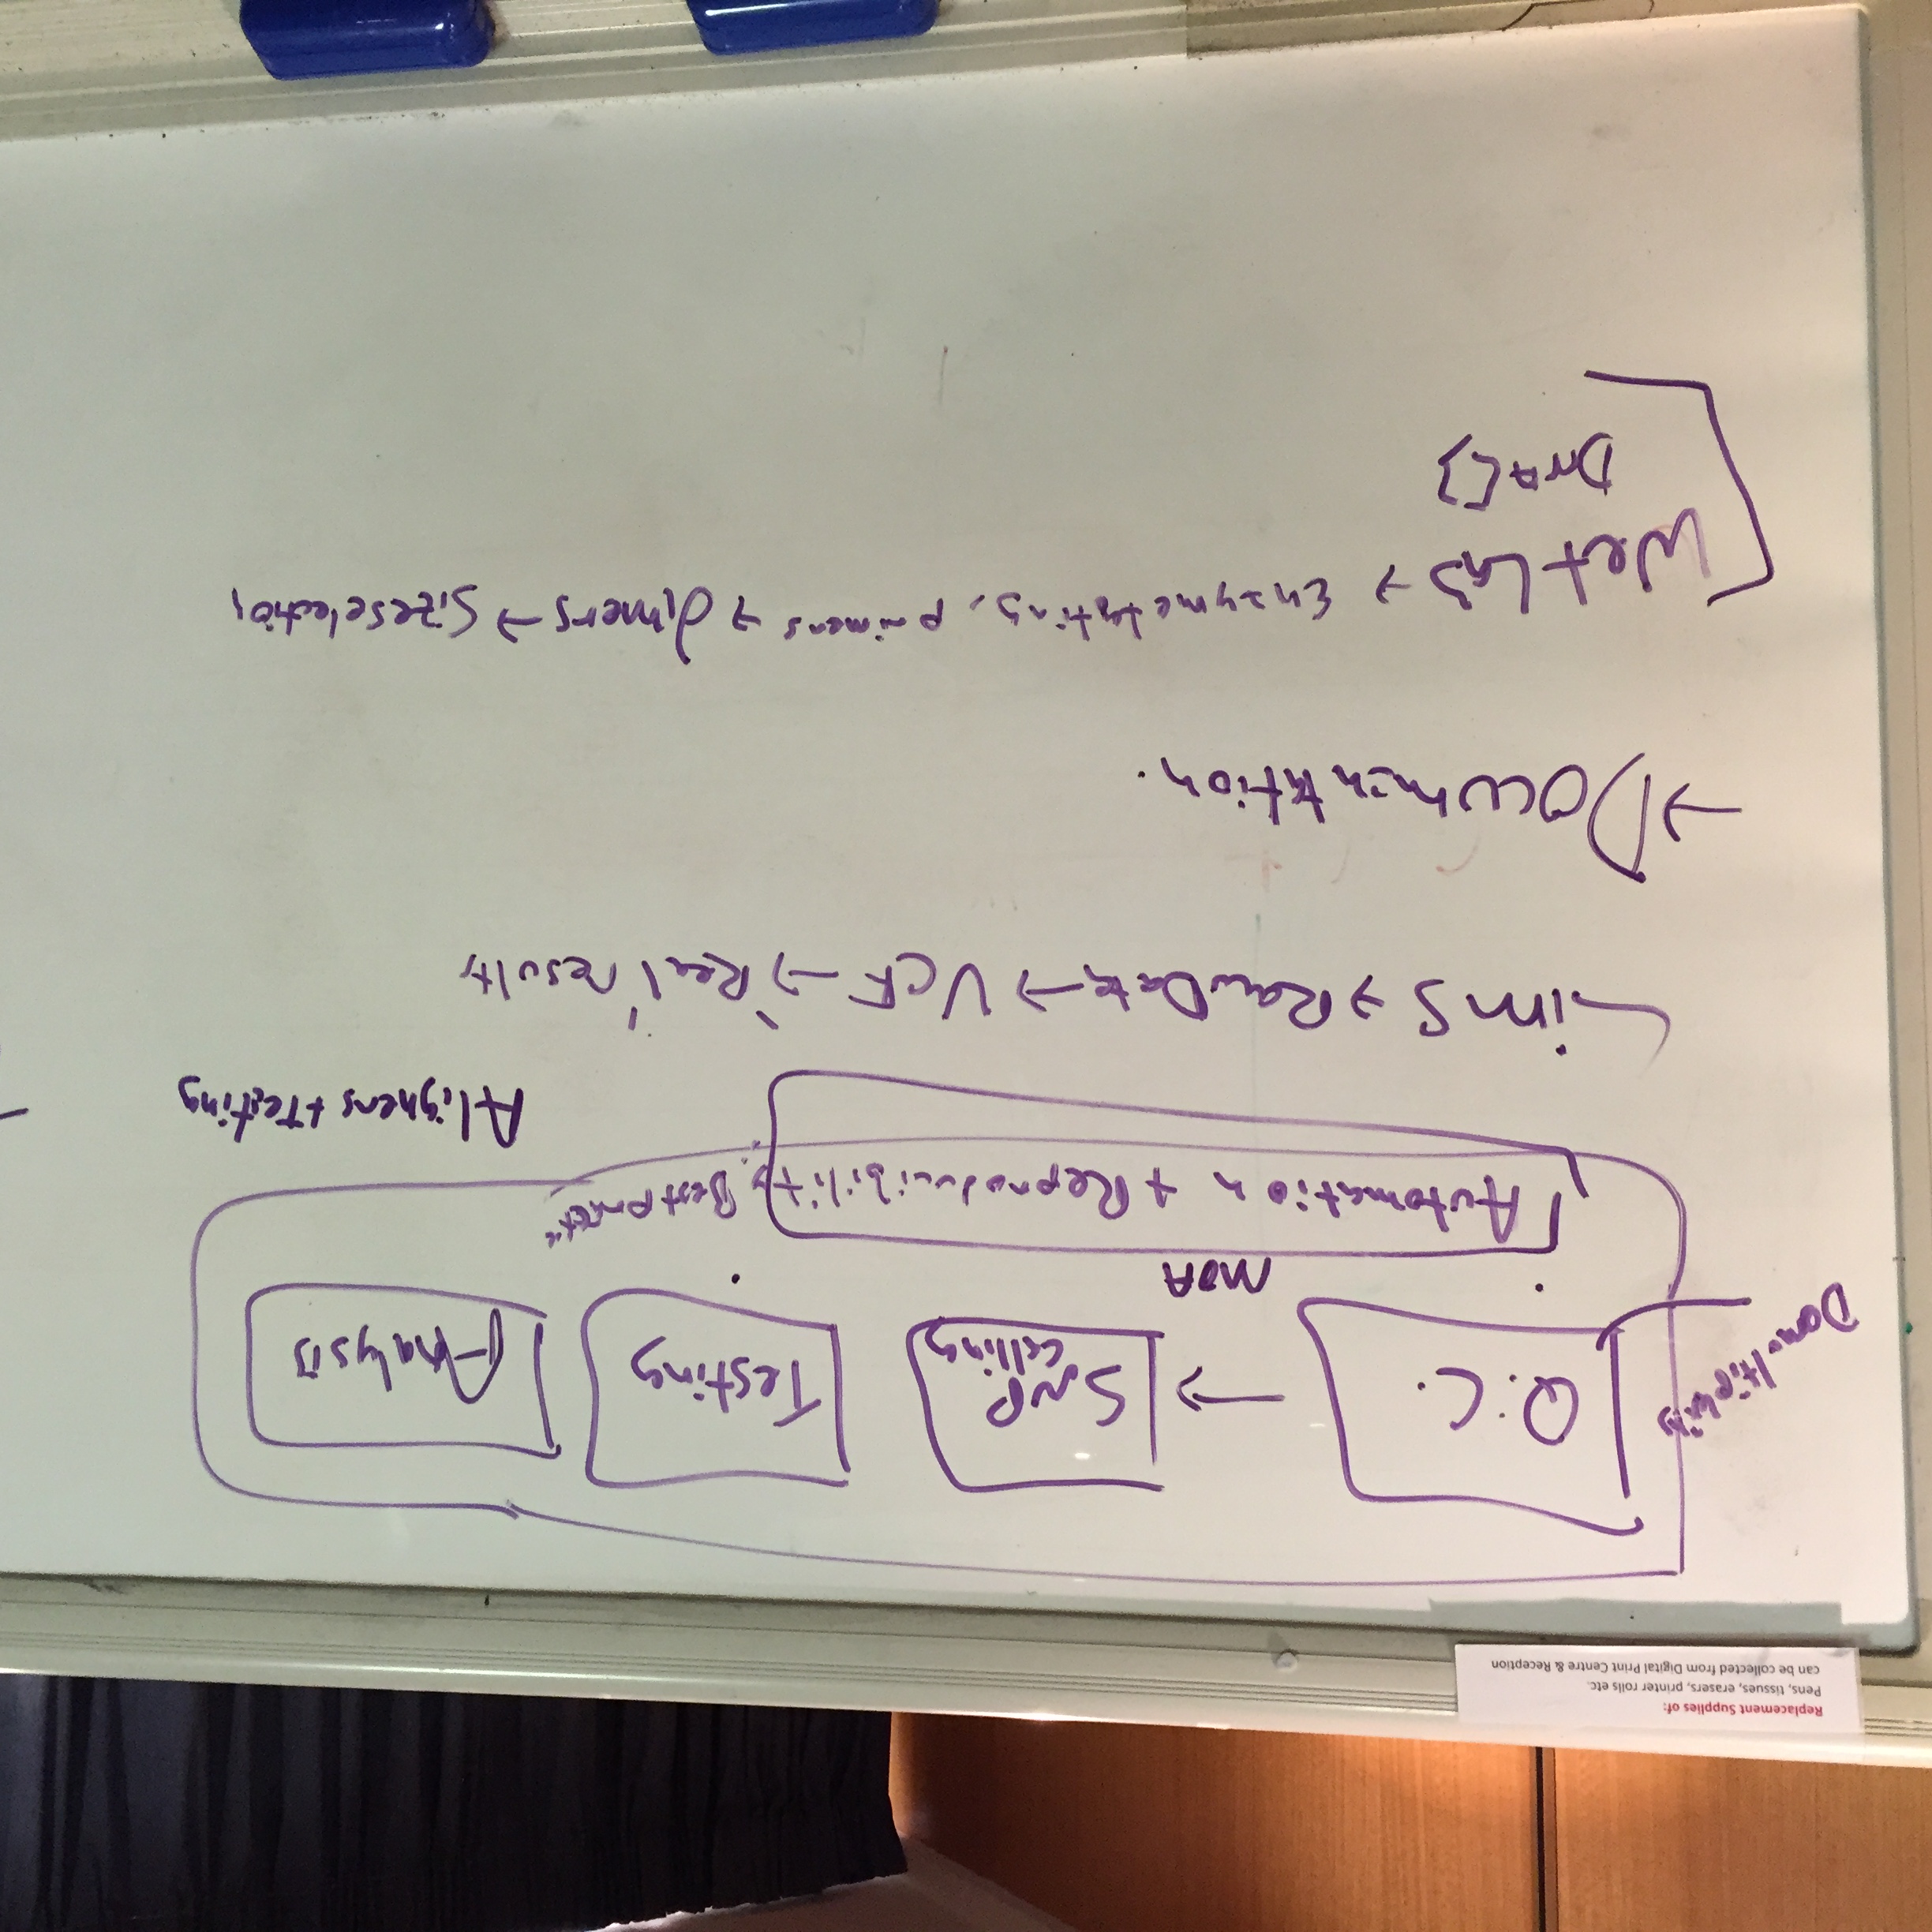 Replacement Supplies of:
Pens, tissues, erasers, printer rolls etc.
can be collected from Digital Print Centre & Reception
Q.C. → SNP calling Testing Analysis
MOA
Automation + Reproducibility, Best
Aligners + Testing
Lims → Raw Data → VCF → 'Real' results
→ Documentation.
Wet Lab → Enzyme testing, primers → dimers → Size selection
DNA []